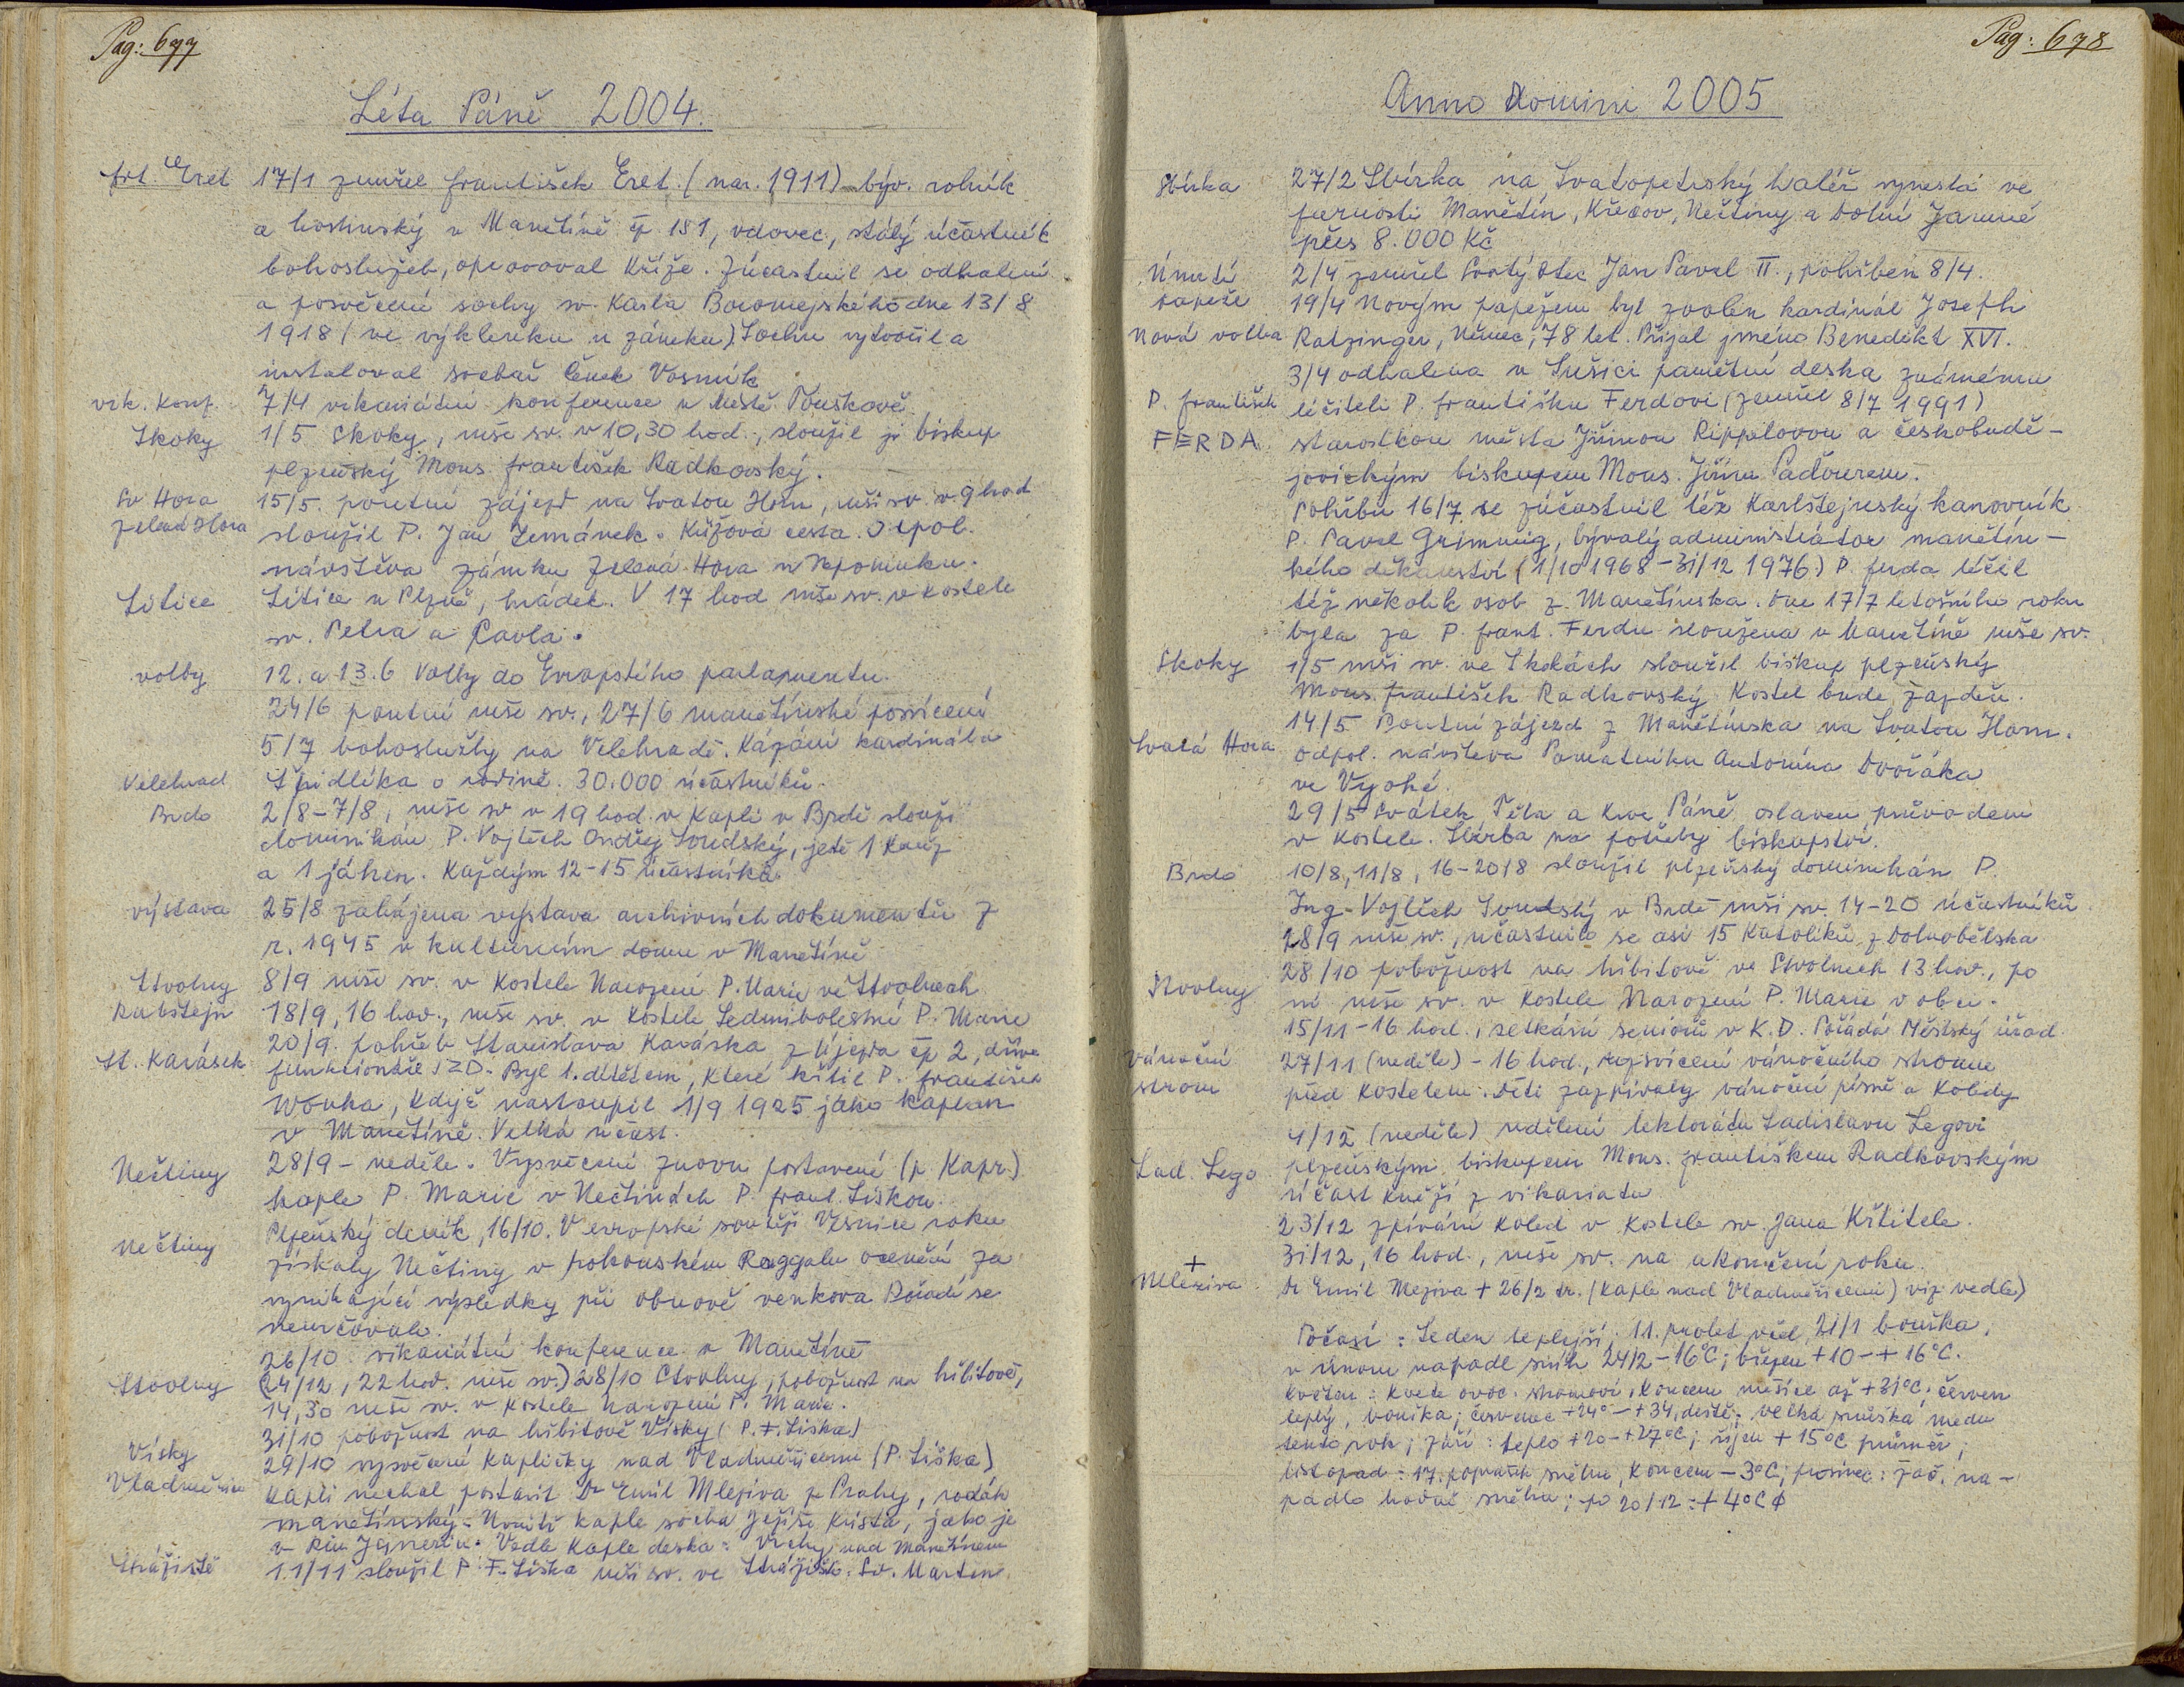 Pag: 677
Léta Páně 2004.
frt. Eret 17/1 zemřel František Eret (nar. 1911) býv. rolník
a hostinský v Manětíně čp 181, vdovec, stálý účastník
bohoslužeb, opravoval kříže. Zúčastnil se odhalení
a posvěcení sochy sv. Karla Boromejského dne 13/8
1918 (ve výklenku u zámku) Sochu vytvořil a
instaloval sochař Čeněk Vosmík
vik. konf. 7/4 vikariátní konference v Městě Touškově.
Skoky 1/5 Skoky, mše sv. v 10,30 hod., sloužil ji biskup
plzeňský Mons. František Radkovský.
Sv Hora 15/5. poutní zájezd na Svatou Horu, mši sv. v 9 hod
Zelená Hora sloužil P. Jan Zemánek. Křížová cesta. Odpol.
návštěva zámku Zelená Hora u Nepomuku.
Litice Litice u Plzně, hrádek. V 17 hod mše sv. v kostele
sv. Petra a Pavla.
volby 12. a 13.6 Volby do Evropského parlamentu.
24/6 poutní mše sv., 27/6 manětínské posvícení
5/7 bohoslužby na Velehradě. Kázání kardinála
Velehrad Špidlíka o rodině. 30.000 účastníků.
Brdo 2/8-7/8, mše sv v 19 hod. v kapli v Brdě slouží
dominikán P. Vojtěch Ondřej Soudský, ještě 1 kněz
a 1 jáhen. Každým 12-15 účastníků
výstava 25/8 zahájena výstava archivních dokumentů z
r. 1945 v kulturním domu v Manětíně
Stvolny 8/9 mše sv. v kostele Narození P. Marie ve Stvolnech
Rabštejn 18/9, 16 hod., mše sv. v kostele Sedmibolestné P. Marie
20/9. pohřeb Stanislava Karáska z Újezda čp 2, dříve
St. Karásek funkcionáře JZD. Byl 1. dítětem, které křtil P. František
Wonka, když nastoupil 1/9 1925 jako kaplan
v Manětíně. Velká účast.
Nečtiny 28/9 - neděle. Vysvěcení znovu postavené (p. Kapr.)
kaple P. Marie v Nečtinách P. frant. Liškou.
Nečtiny Plzeňský deník, 16/10. V evropské soutěži Vesnice roku
získaly Nečtiny v rakouském Raggalu ocenění za
vynikající výsledky při obnově venkova Pořadí se
neurčovalo.
26/10 vikariátní konference v Manětíně
Stvolny (24/12, 22 hod. mše sv.) 28/10 Stvolny, pobožnost na hřbitově,
14,30 mše sv. v kostele Narození P. Marie.
31/10 pobožnost na hřbitově Vísky (P. F. Liška)
Vísky 29/10 vysvěcení kapličky nad Vladměřicemi (P. Liška)
Vladměřice Kapli nechal postavit Dr Emil Mleziva z Prahy, rodák
manětínský. Uvnitř kaple socha Ježíše Krista, jako je
v Rio Janeriu. Vedle kaple deska: Vrchy nad Manětínem
Strážiště 11/11 sloužil P. F. Liška mši sv. ve Strážišti. Sv. Martin.
Pag: 678
Anno Domini 2005
Sbírka 27/2 Sbírka na Svatopetrský haléř vynesla ve
farnosti Manětín, Křečov, Nečtiny a Dolní Jamné
přes 8.000 Kč
Úmrtí 2/4 zemřel Svatý Otec Jan Pavel II., pohřben 8/4.
papeže 19/4 Novým papežem byl zvolen kardinál Joseph
Nová volba Ratzinger, Němec, 78 let. Přijal jméno Benedikt XVI.
3/4 odhalena v Sušici pamětní deska známému
P. František léčiteli P. Františku Ferdovi (zemřel 8/7 1991)
FERDA starostkou města Jiřinou Rippelovou a českobudě-
jovickým biskupem Mons. Jiřím Paďourem.
Pohřbu 16/7 se zúčastnil též Karlštejnský kanovník
P. Pavel Grimmig, bývalý administrátor manětín-
ského děkanství (1/10 1968 - 31/12 1976) P. ferda léčil
též několik osob z Manětínska. Dne 17/7 letošního roku
byla za P. frant. Ferdu sloužena v Manětíně mše sv.
Skoky 1/5 mši sv. ve Skokách sloužil biskup plzeňský
Mons. František Radkovský. Kostel bude zajištěn.
14/5 Poutní zájezd z Manětínska na Svatou Horu.
Svatá Hora odpol. návštěva Památníku Antonína Dvořáka
ve Vysoké.
29/5 Svátek Těla a Krve Páně oslaven průvodem
v kostele. Sbírka na potřeby biskupství.
Brdo 10/8, 11/8, 16-20/8 sloužil plzeňský dominikán P.
Ing. Vojtěch Soudský v Brdě mši sv. 14-20 účastníků
28/9 mše sv., účastnilo se asi 15 katolíků z Dolnobělska
28/10 pobožnost na hřbitově ve Stvolnech 13 hod., po
Stvolny ní mše sv. v kostele Narození P. Marie v obci.
15/11-16 hod., setkání seniorů v K.D. Pořádá Městský úřad.
Vánoční 27/11 (neděle) - 16 hod., rozsvícení vánočního stromu
strom před kostelem. Děti zazpívaly vánoční písně a koledy
4/12 (neděle) udělení lektorátu Ladislavu Legovi
Lad. Lego plzeňským biskupem Mons. Františkem Radkovským
účast kněží z vikariátu
23/12 zpívání koled v kostele sv. Jana Křtitele.
31/12, 16 hod., mše sv. na ukončení roku.
+
Mleziva Dr Emil Mleziva + 26/2 tr. (kaple nad Vladměřicemi) viz vedle)
Počasí: Leden teplejší, 11. prolet včel, 21/1 bouřka,
v únoru napadl sníh 24/2 -16°C; březen +10-+16°C.
Květen: kvete ovoc. stromoví, koncem měsíce až +31°C. červen
teplý, bouřka; červenec +24°-+34, deště; velká snůška medu
tento rok; září: teplo +20-+27°C; říjen +15°C průměr;
listopad: 17. poprašek sněhu, koncem -3°C; prosinec: zač. na-
padlo hodně sněhu; po 20/12: +4°C ϕ